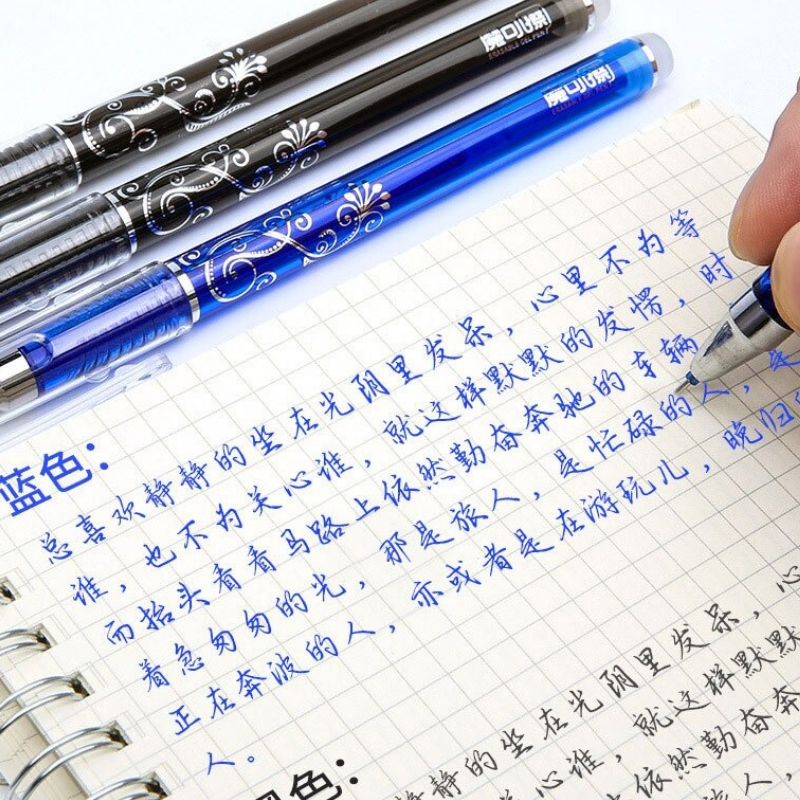 ERASABLE GEL PEN
蓝色：
总喜欢静静的坐在光阴里发呆，心里不为等
谁，也不为关心谁，就这样默默的发愣，时
而抬头看看马路上依然勤奋奔驰的车辆
着急匆匆的光，那是旅人，是忙碌的人，是
正在奔波的人，亦或者是在游玩儿，晚归
人。
黑色：
静静的坐在光阴里发呆，心
关心谁，就这样默默
上依然勤奋奔
旅人，